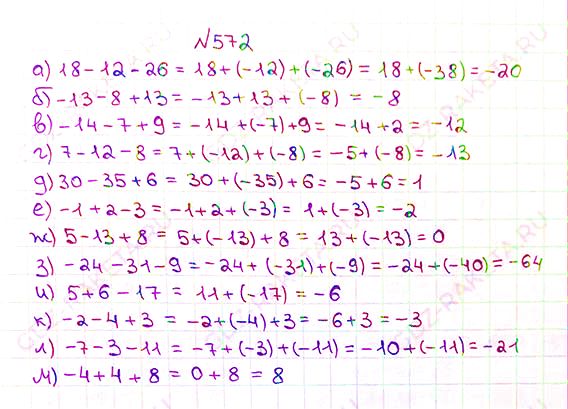 №572
а) 18-12-26 = 18+(-12)+(-26) = 18+(-38) = -20
б) -13-8+13 = -13+13+(-8) = -8
в) -14-7+9 = -14+(-7)+9 = -14+2 = -12
г) 7-12-8 = 7+(-12)+(-8) = -5+(-8) = -13
д) 30-35+6 = 30+(-35)+6 = -5+6 = 1
е) -1+2-3 = -1+2+(-3) = 1+(-3) = -2
ж) 5-13+8 = 5+(-13)+8 = 13+(-13) = 0
з) -24-31-9 = -24+(-31)+(-9) = -24+(-40) = -64
и) 5+6-17 = 11+(-17) = -6
к) -2-4+3 = -2+(-4)+3 = -6+3 = -3
л) -7-3-11 = -7+(-3)+(-11) = -10+(-11) = -21
м) -4+4+8 = 0+8 = 8